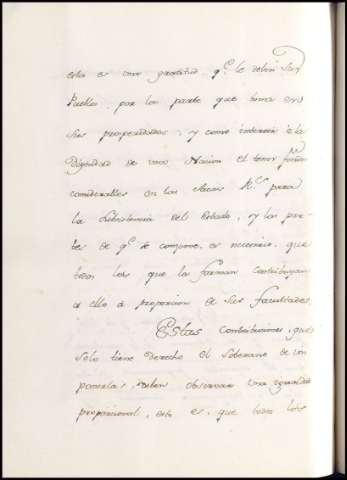 esta es una gratitud, q.e le deben sus
Pueblos, por la parte que toma en
sus propiedades, y como interesa à la
Dignidad de una Nacion el tener fondos
considerables en las Arcas R.s para
la subsistencia del Estado, y las par-
tes de q.e se compone, es necesario, que
todos los que la forman contribuyan
a ello á proporcion de sus facultades
Estas contribuciones, que
solo tiene derecho el Soberano de im
ponerlas, deben observar una igualdad
proporcional, esto es, que todos los